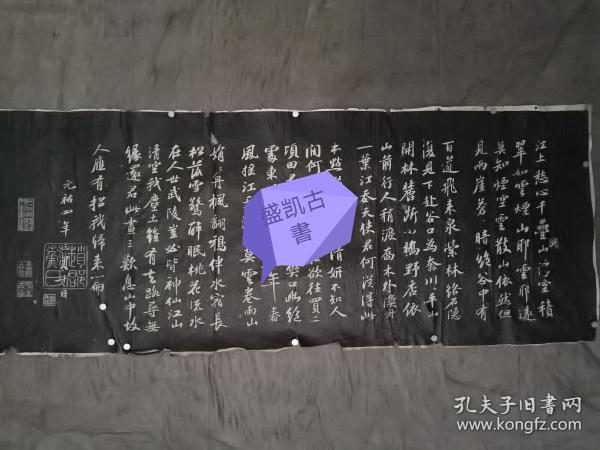 江上愁心千疊山浮空積
翠如雲煙山耶雲耶遠
莫知煙空雲散山依然但
見兩崖蒼暗絕谷中有
百道飛來泉縈林絡石隱
復見下赴谷口為奔川平
開林麓斷小橋野店依
山前行人稍渡喬木外漁舟
一葉江吞天使君何從得此
本點 清妍不知人
間何 欲往買二
頃田 絕
東 年春
風搖江 暮雲卷雨山
娟丹楓翻鴉伴水宿長
松落雪驚醉眠桃花流水
在人世武陵豈必皆神仙江山
清空我塵土雖有去路尋無
緣還君此畫三歎息山中故
人應有招我歸來篇
元祐四年
日
盛凯古
書
孔夫子旧書网
www.kongfz.com